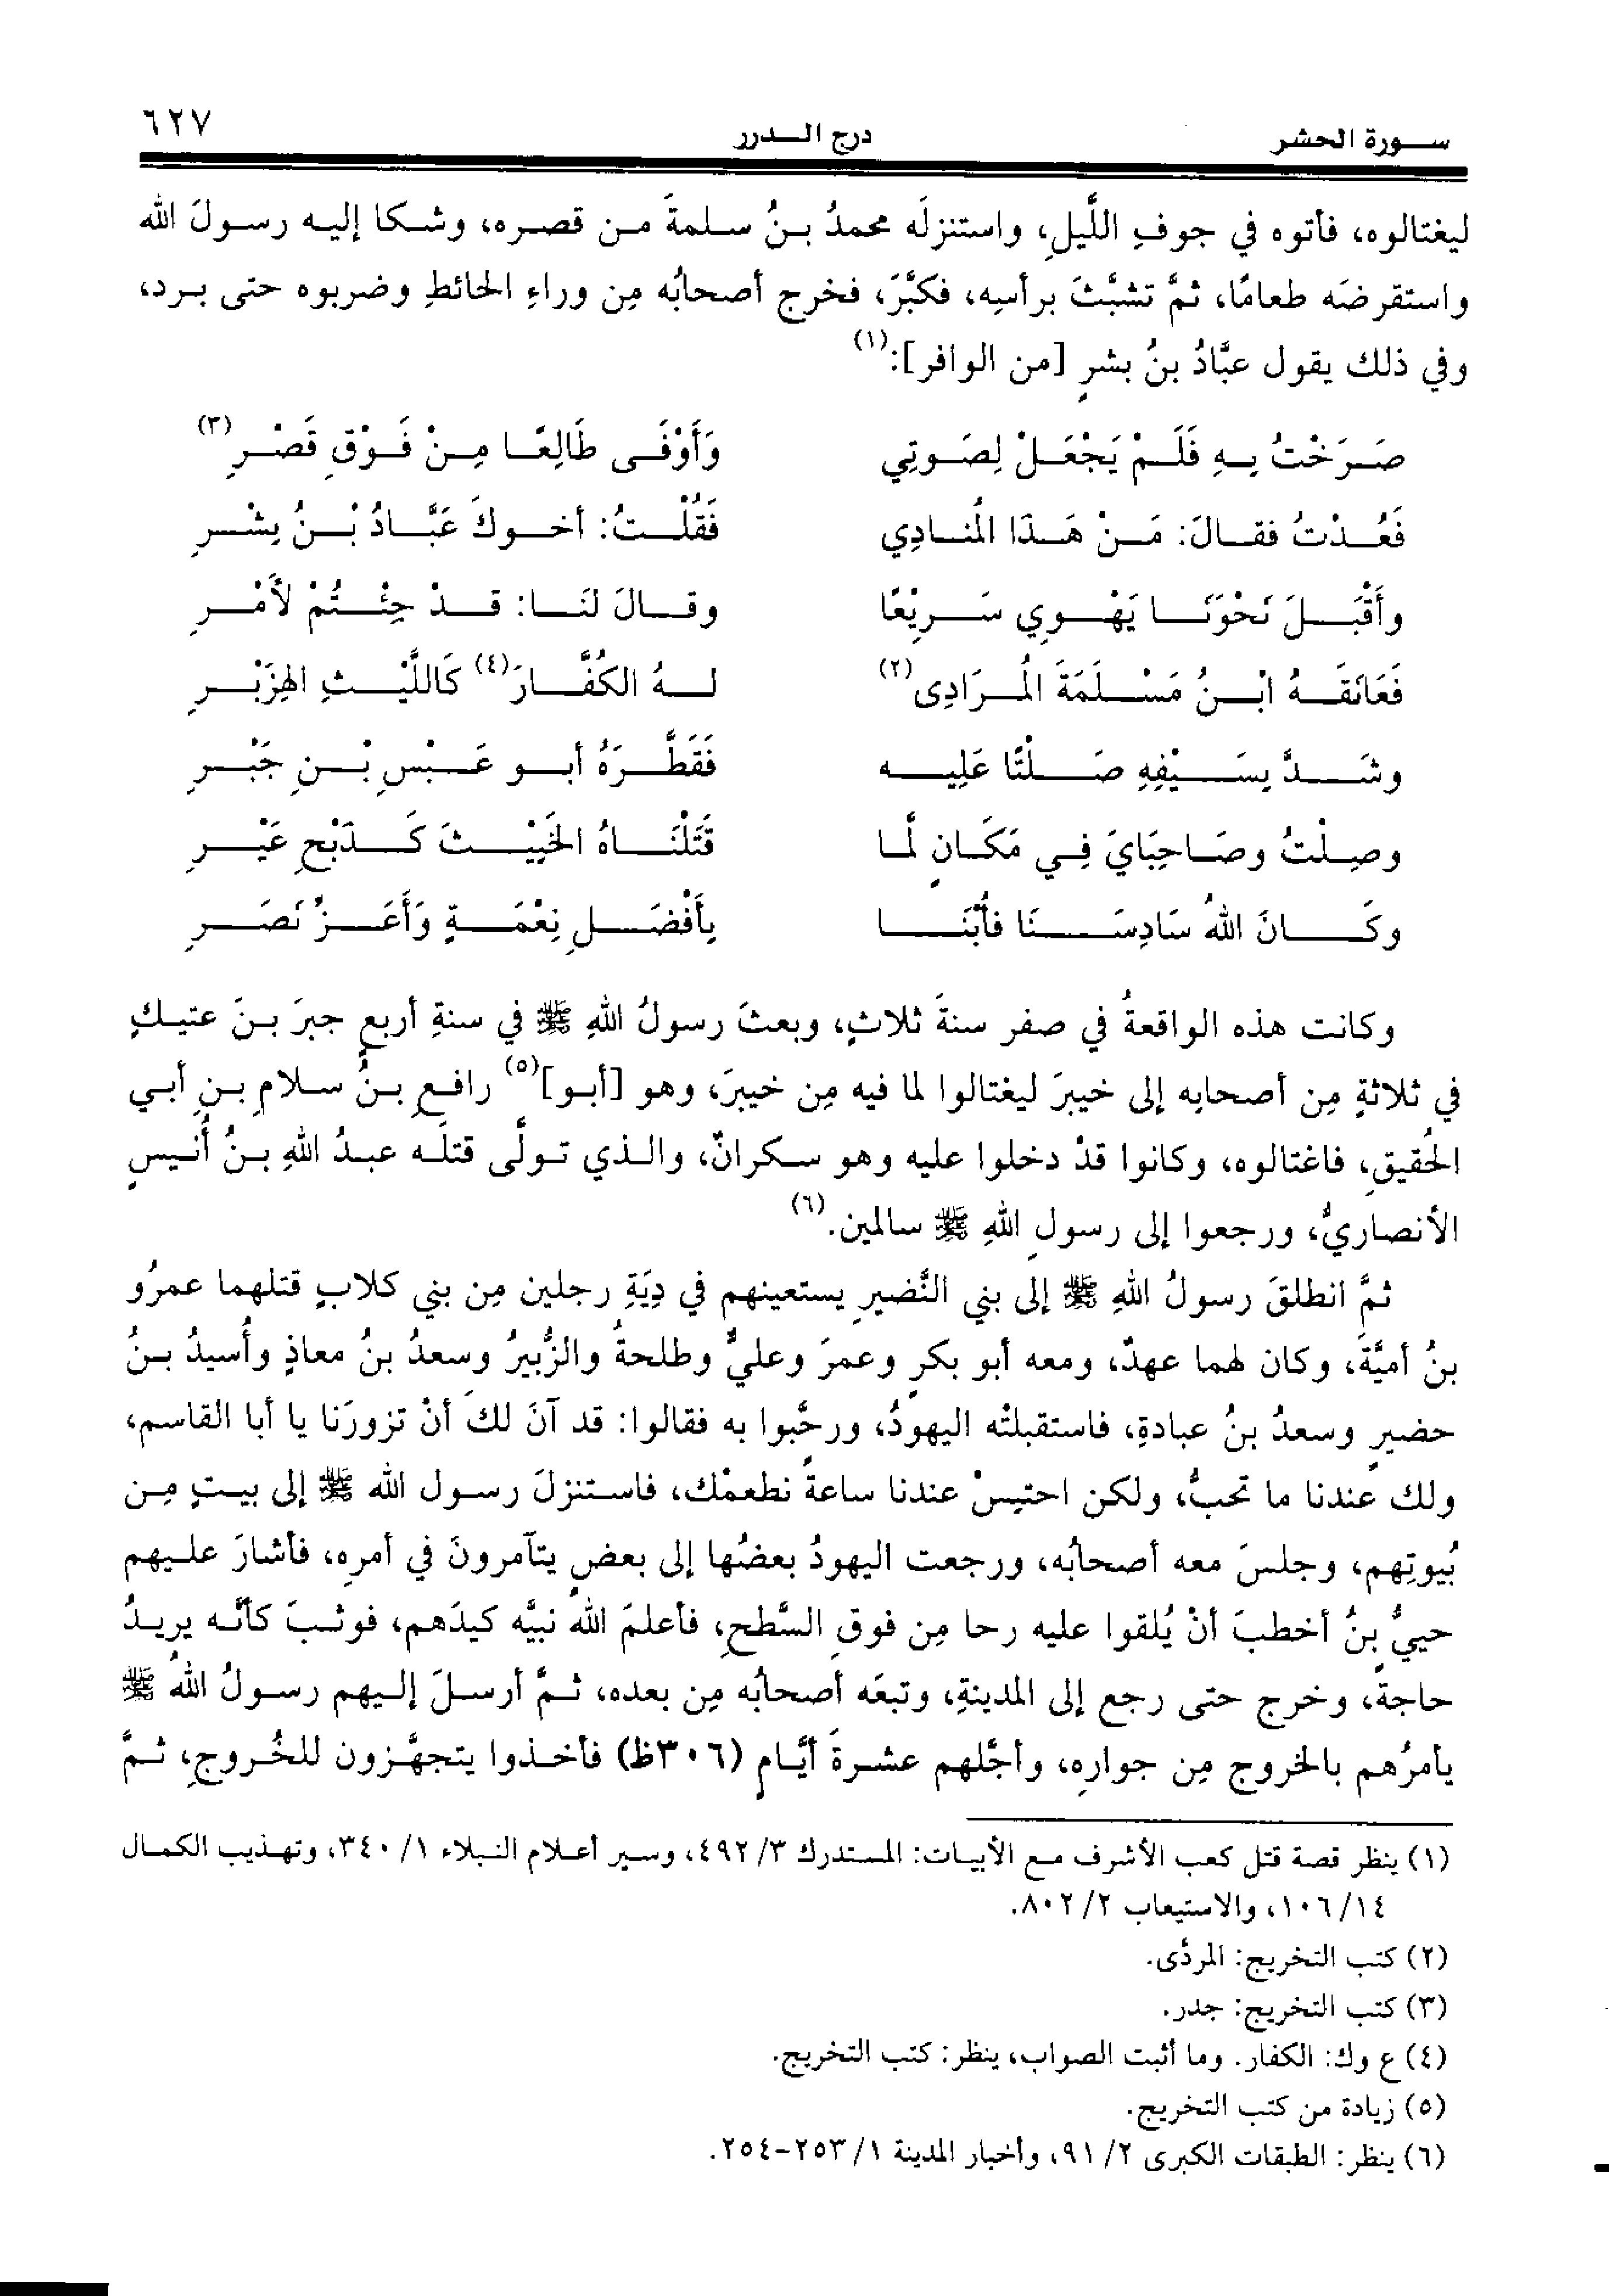 سـورة الحشر درج الـدرر ٦٢٧
ليغتالوه، فأتوه في جوفِ اللَّيلِ، واستنزلَه محمدُ بـنُ سـلمةَ مـن قصـره، وشـكا إليـه رسـولَ الله
واستقرضَه طعامًا، ثمَّ تشبَّثَ برأسِه، فكبَّرَ، فخرج أصحابُه مِن وراءِ الحائطِ وضربوه حتى بـرد،
وفي ذلك يقول عبَّادُ بنُ بشرٍ [من الوافر]:(١)
صَـرَخْتُ بِـهِ فَلَـمْ يَجْعَـلْ لِصَـوتِي وَأَوْفَـى طَالِعًـا مِـنْ فَـوْقِ قَصْـرِ(٣)
فَعُـدْتُ فقـالَ: مَـنْ هَـذَا المُنـادِي فَقُلْـتُ: أخـوكَ عَبَّـادُ بْـنُ بِشْـرِ
وأَقْبَـلَ نَحْوَنَـا يَهْـوِي سَـرِيْعًا وقـالَ لَنَـا: قـدْ جِئْـتُمْ لأَمْـرِ
فَعَانَقَـهُ ابْـنُ مَسْـلَمَةَ المُـرَادِى(٢) لـهُ الكُفَّـارَ(٤) كَاللَّيْـثِ الهِزَبْـرِ
وشَـدَّ بِسَـيْفِهِ صَـلْتًا عَلِيـه فَقَطَّـرَهُ أبـو عَـبْسِ بْـنِ جَبْـرِ
وصِـلْتُ وصَـاحِبَايَ فِـي مَكَـانٍ لمَّـا قَتَلْنَـاهُ الخَبِيْـثَ كَـذَبْحِ عَيْـرِ
وكَـانَ اللهُ سَادِسَـنَا فأُبْنَـا بِأَفْضَـلِ نِعْمَـةٍ وَأَعَـزِّ نَصَـرِ
وكانت هذه الواقعةُ في صفر سنةَ ثلاثٍ، وبعثَ رسولُ اللهِ ﷺ في سنةِ أربعٍ جبرَ بـنَ عتيـكٍ
في ثلاثةٍ مِن أصحابِه إلى خيبرَ ليغتالوا لما فيه مِن خيبرَ، وهو [أبـو](٥) رافـعِ بـنُ سـلامِ بـنِ أبـي
الحُقيقِ، فاغتالوه، وكانوا قدْ دخلوا عليه وهو سـكرانٌ، والـذي تـولَّى قتلَـه عبـدُ اللهِ بـنُ أُنـيسٍ
الأنصاريُّ، ورجعوا إلى رسولِ اللهِ ﷺ سالمين.(٦)
ثمَّ انطلقَ رسولُ اللهِ ﷺ إلى بني النَّضيرِ يستعينهم في دِيَةِ رجلين مِن بني كلابٍ قتلهما عمرُو
بنُ أميَّةَ، وكان لهما عهدٌ، ومعه أبو بكرٍ وعمرَ وعليٌّ وطلحةُ والزُّبيرُ وسعدُ بنُ معاذٍ وأُسيدُ بـنُ
حضيرٍ وسعدُ بنُ عبادةِ، فاستقبلتْه اليهودُ، ورحَّبوا به فقالوا: قد آنَ لكَ أنْ تزورَنا يا أبا القاسم،
ولك عندنا ما تحبُّ، ولكن احتبِسْ عندنا ساعةً نطعمْك، فاسـتنزلَ رسـول الله ﷺ إلى بيـتٍ مِـن
بُيوتِهم، وجلسَ معه أصحابُه، ورجعت اليهودُ بعضُها إلى بعضٍ يتآمرونَ في أمرِه، فأشارَ علـيهم
حييُّ بنُ أخطبَ أنْ يُلقوا عليه رحا مِن فوقِ السَّطحِ، فأعلمَ اللهُ نبيَّه كيدَهم، فوثـبَ كأنَّـه يريـدُ
حاجةً، وخرج حتى رجع إلى المدينةِ، وتبعَه أصحابُه مِن بعده، ثـمَّ أرسـلَ إلـيهم رسـولُ اللهُ ﷺ
يأمرُهم بالخروج مِن جوارِه، وأجَّلهم عشـرةَ أيَّـامٍ (٣٠٦ظ) فأخـذوا يتجهَّـزون للخُـروجِ، ثـمَّ
(١) ينظر قصة قتل كعب الأشرف مـع الأبيـات: المسـتدرك ٣/ ٤٩٢، وسـير أعـلام النـبلاء ١/ ٣٤٠، وتهـذيب الكمـال
١٤/ ١٠٦، والاستيعاب ٢/ ٨٠٢.
(٢) كتب التخريج: المردَى.
(٣) كتب التخريج: جدر.
(٤) ع وك: الكفار. وما أثبت الصواب، ينظر: كتب التخريج.
(٥) زيادة من كتب التخريج.
(٦) ينظر: الطبقات الكبرى ٢/ ٩١، وأخبار المدينة ١/ ٢٥٣-٢٥٤.